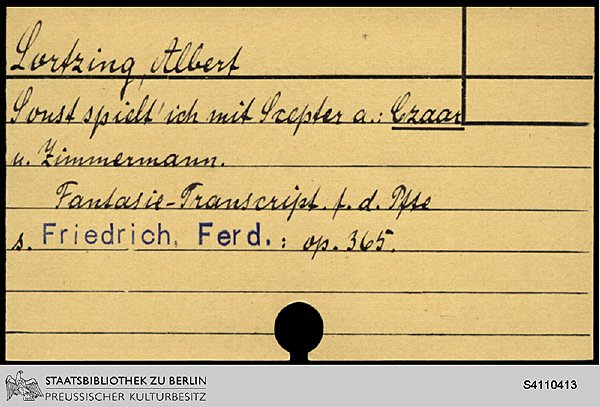 Lortzing, Albert
Sonst spielt' ich mit Scepter a.: Czaar
u. Zimmermann.
Fantasie-Transcript. f. d. Pfte
s. Friedrich, Ferd.: op. 365.
STAATSBIBLIOTHEK ZU BERLIN
PREUSSISCHER KULTURBESITZ
S4110413